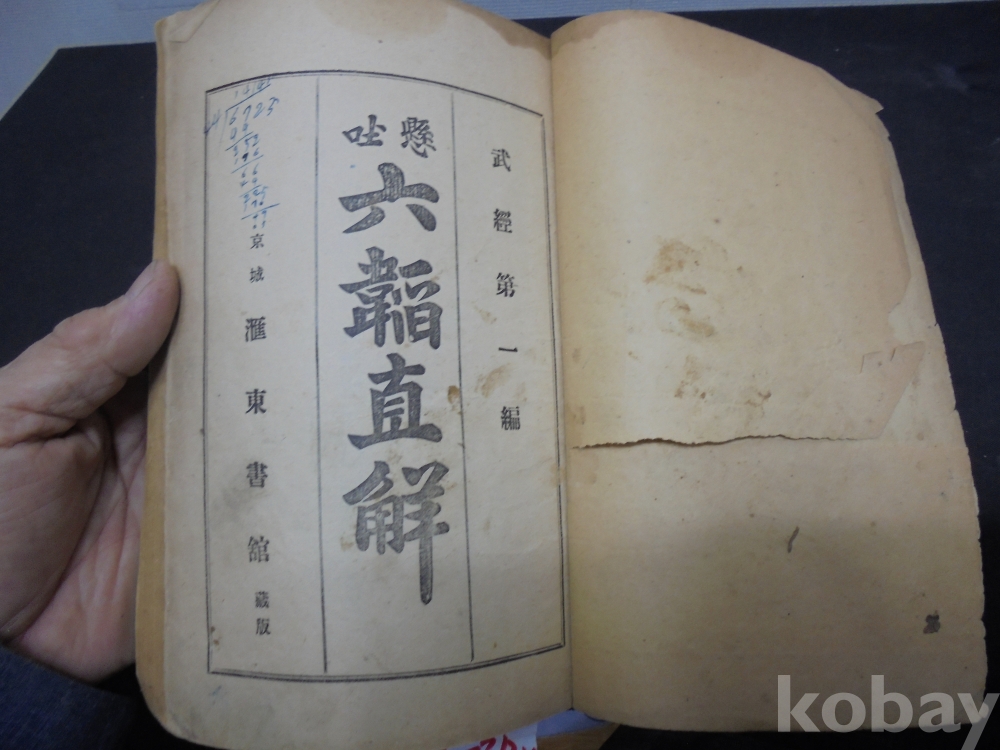 武經第一編
懸吐
六韜直解
京城 滙東書館 藏版
6923
kobay